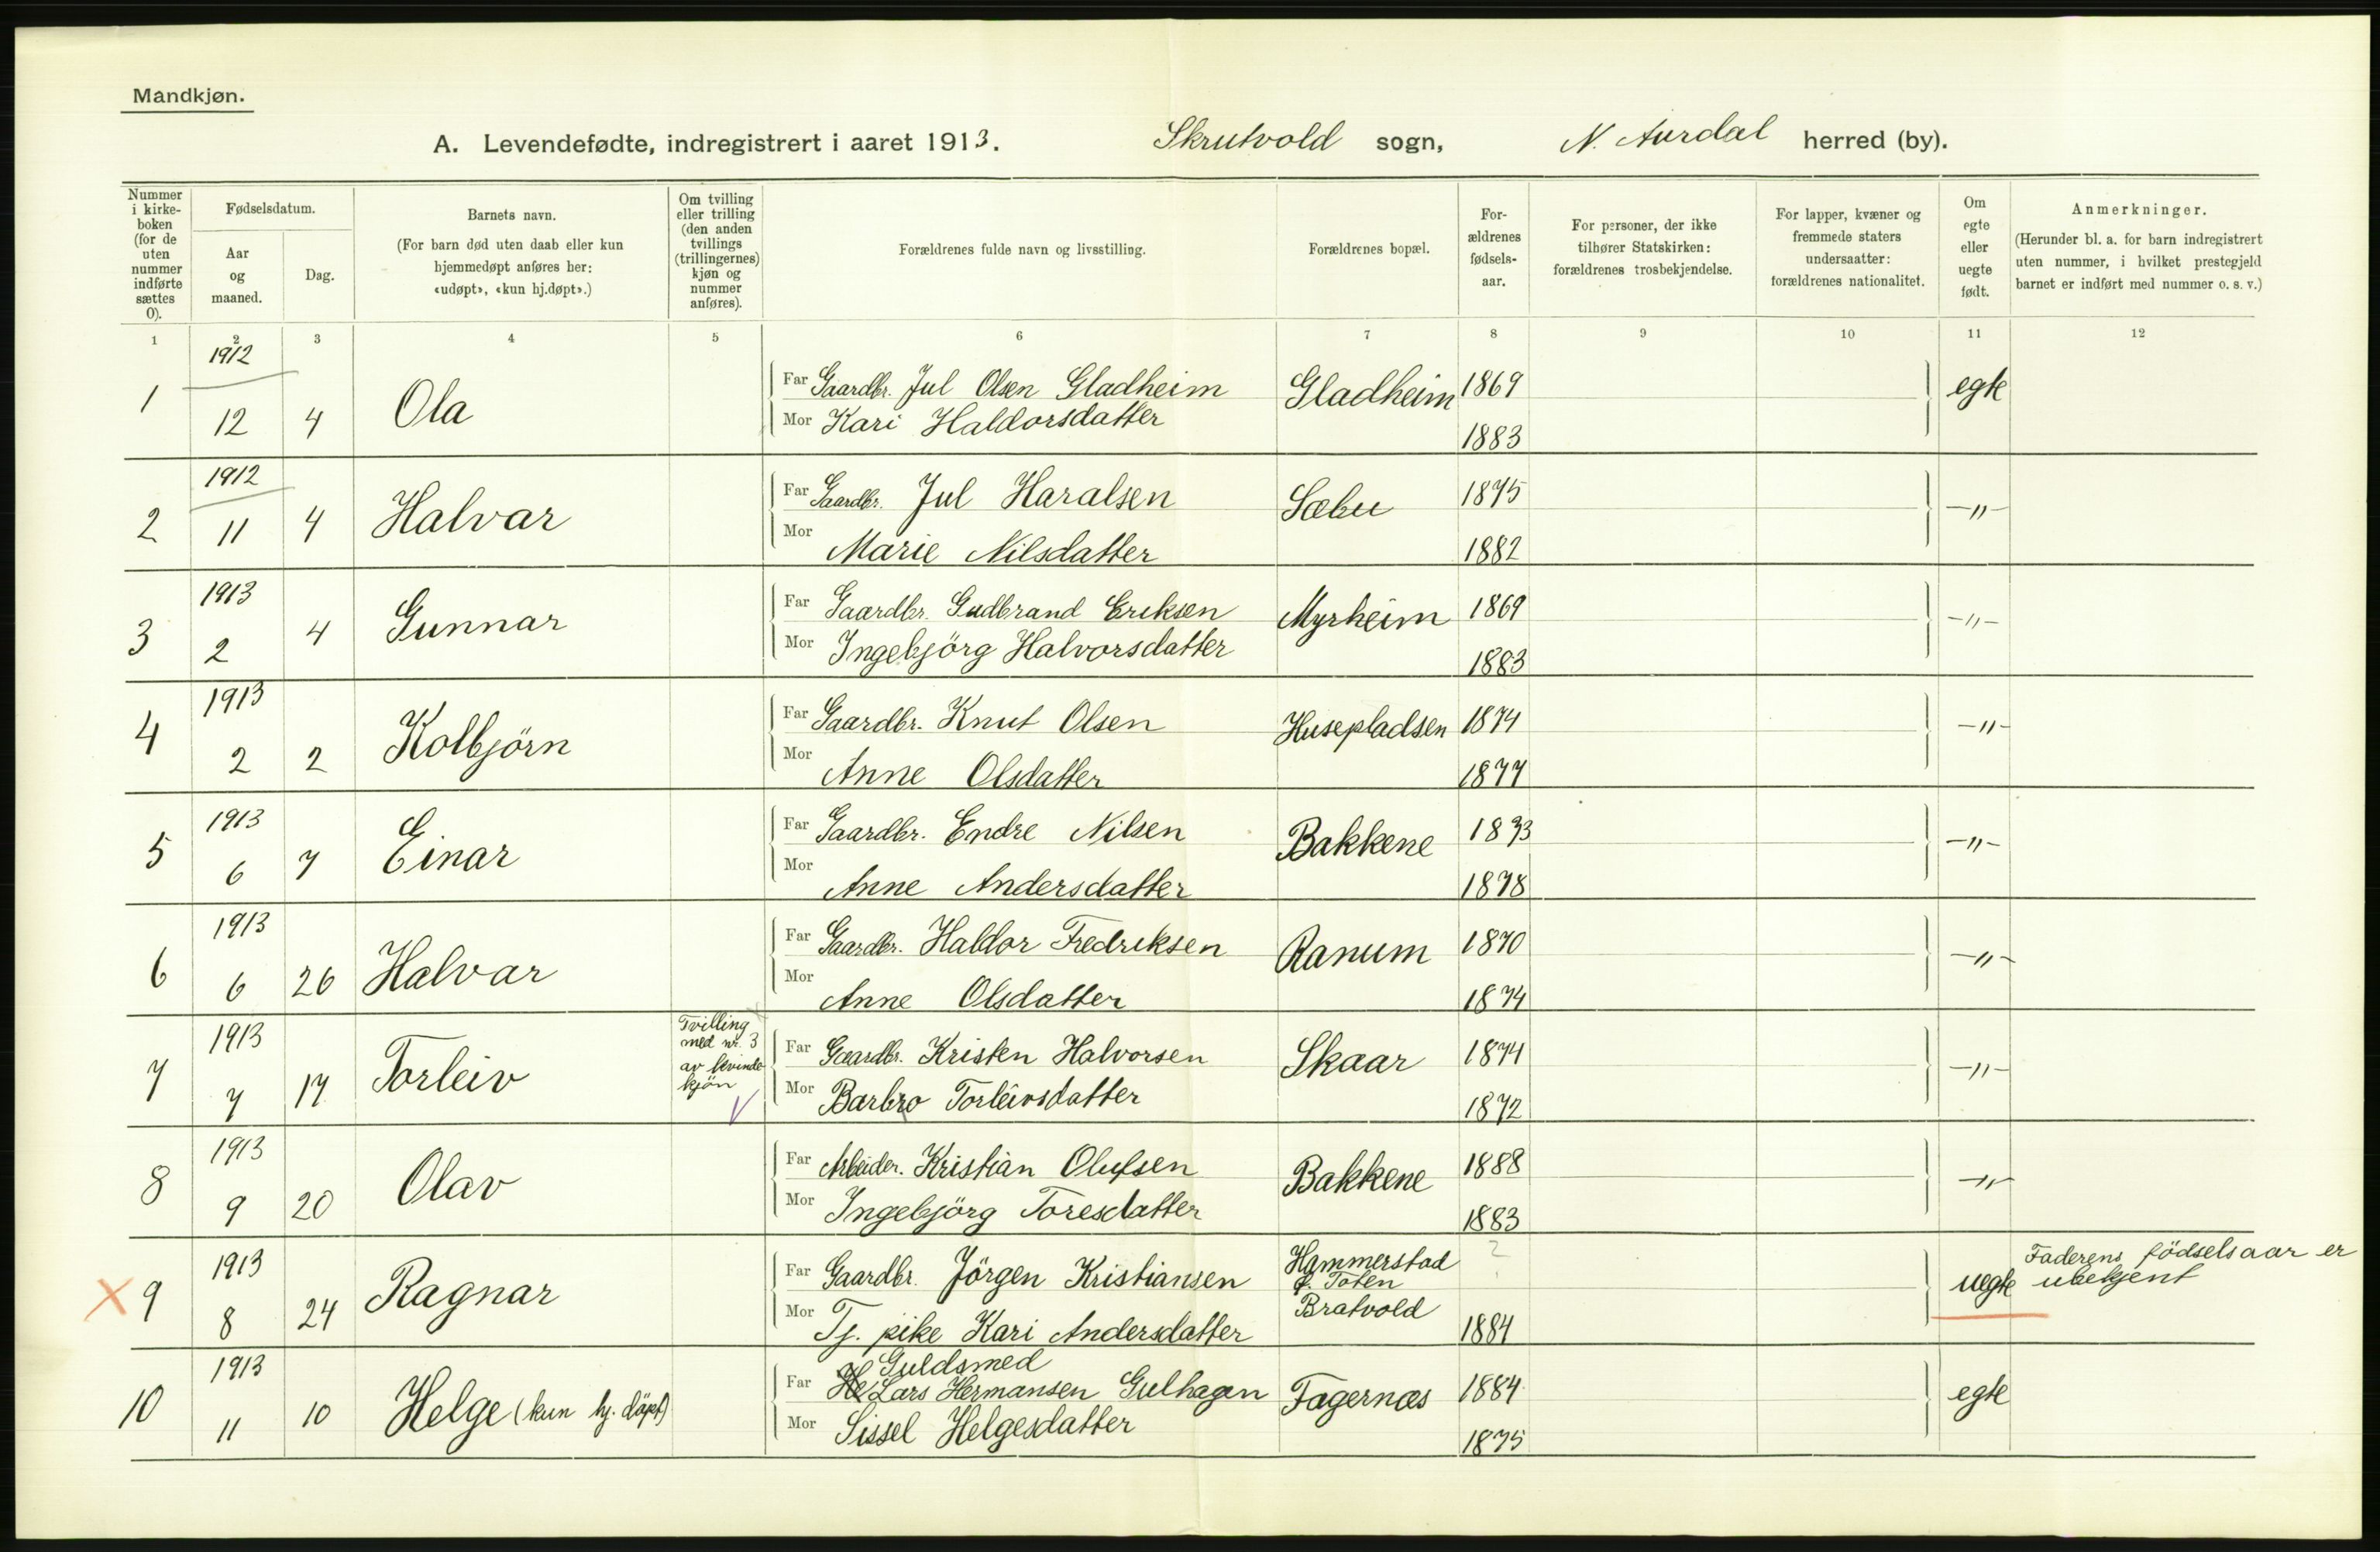 Mandkjøn.
A. Levendefødte, indregistrert i aaret 1913. Skrutvold sogn, N. Aurdal herred (by).
Nummer i kirkeboken (for de uten nummer indførte sættes 0).
Fødselsdatum.
Aar og maaned.
Dag.
Barnets navn.
(For barn død uten daab eller kun hjemmedøpt anføres her: «udøpt», «kun hj.døpt».)
Om tvilling eller trilling (den anden tvillings (trillingernes) kjøn og nummer anføres).
Forældrenes fulde navn og livsstilling.
Forældrenes bopæl.
Forældrenes fødselsaar.
For personer, der ikke tilhører Statskirken: forældrenes trosbekjendelse.
For lapper, kvæner og fremmede staters undersaatter: forældrenes nationalitet.
Om egte eller uegte født.
Anmerkninger.
(Herunder bl. a. for barn indregistrert uten nummer, i hvilket prestegjeld barnet er indført med nummer o. s. v.)
1 2 3 4 5 6 7 8 9 10 11 12
1 1912 12 4 Ola Far Gaardbr. Jul Olsen Gladheim Gladheim 1869 egte
Mor Kari Haldorsdatter 1883
2 1912 11 4 Halvar Far Gaardbr. Jul Haralsen Sæbu 1875 -"-
Mor Marie Nilsdatter 1882
3 1913 2 4 Gunnar Far Gaardbr. Gudbrand Eriksen Myrheim 1869 -"-
Mor Ingebjörg Halvorsdatter 1883
4 1913 2 2 Kolbjörn Far Gaardbr. Knut Olsen Husepladsen 1874 -"-
Mor Anne Olsdatter 1877
5 1913 6 7 Einar Far Gaardbr. Endre Nilsen Bakkene 1873 -"-
Mor Anne Andersdatter 1878
6 1913 6 26 Halvar Far Gaardbr. Haldor Fredriksen Ranum 1870 -"-
Mor Anne Olsdatter 1874
7 1913 7 17 Torleiv Tvilling med nr. 3 av kvindekjön Far Gaardbr. Kristen Halvorsen Skaar 1874 -"-
Mor Barbro Torleivsdatter 1872
8 1913 9 20 Olav Far Arbeider. Kristian Olufsen Bakkene 1888 -"-
Mor Ingebjörg Toresdatter 1883
X 9 1913 8 24 Ragnar Far Gaardbr. Jörgen Kristiansen Hammerstad Ø. Toten ? uegte Faderens födselsaar er ubekjent
Mor Tj. pike Kari Andersdatter Bratvold 1884
10 1913 11 10 Helge (kun hj. döpt) Far Guldsmed Lars Hermansen Gulhagen Fagernæs 1884 egte
Mor Sissel Helgesdatter 1875